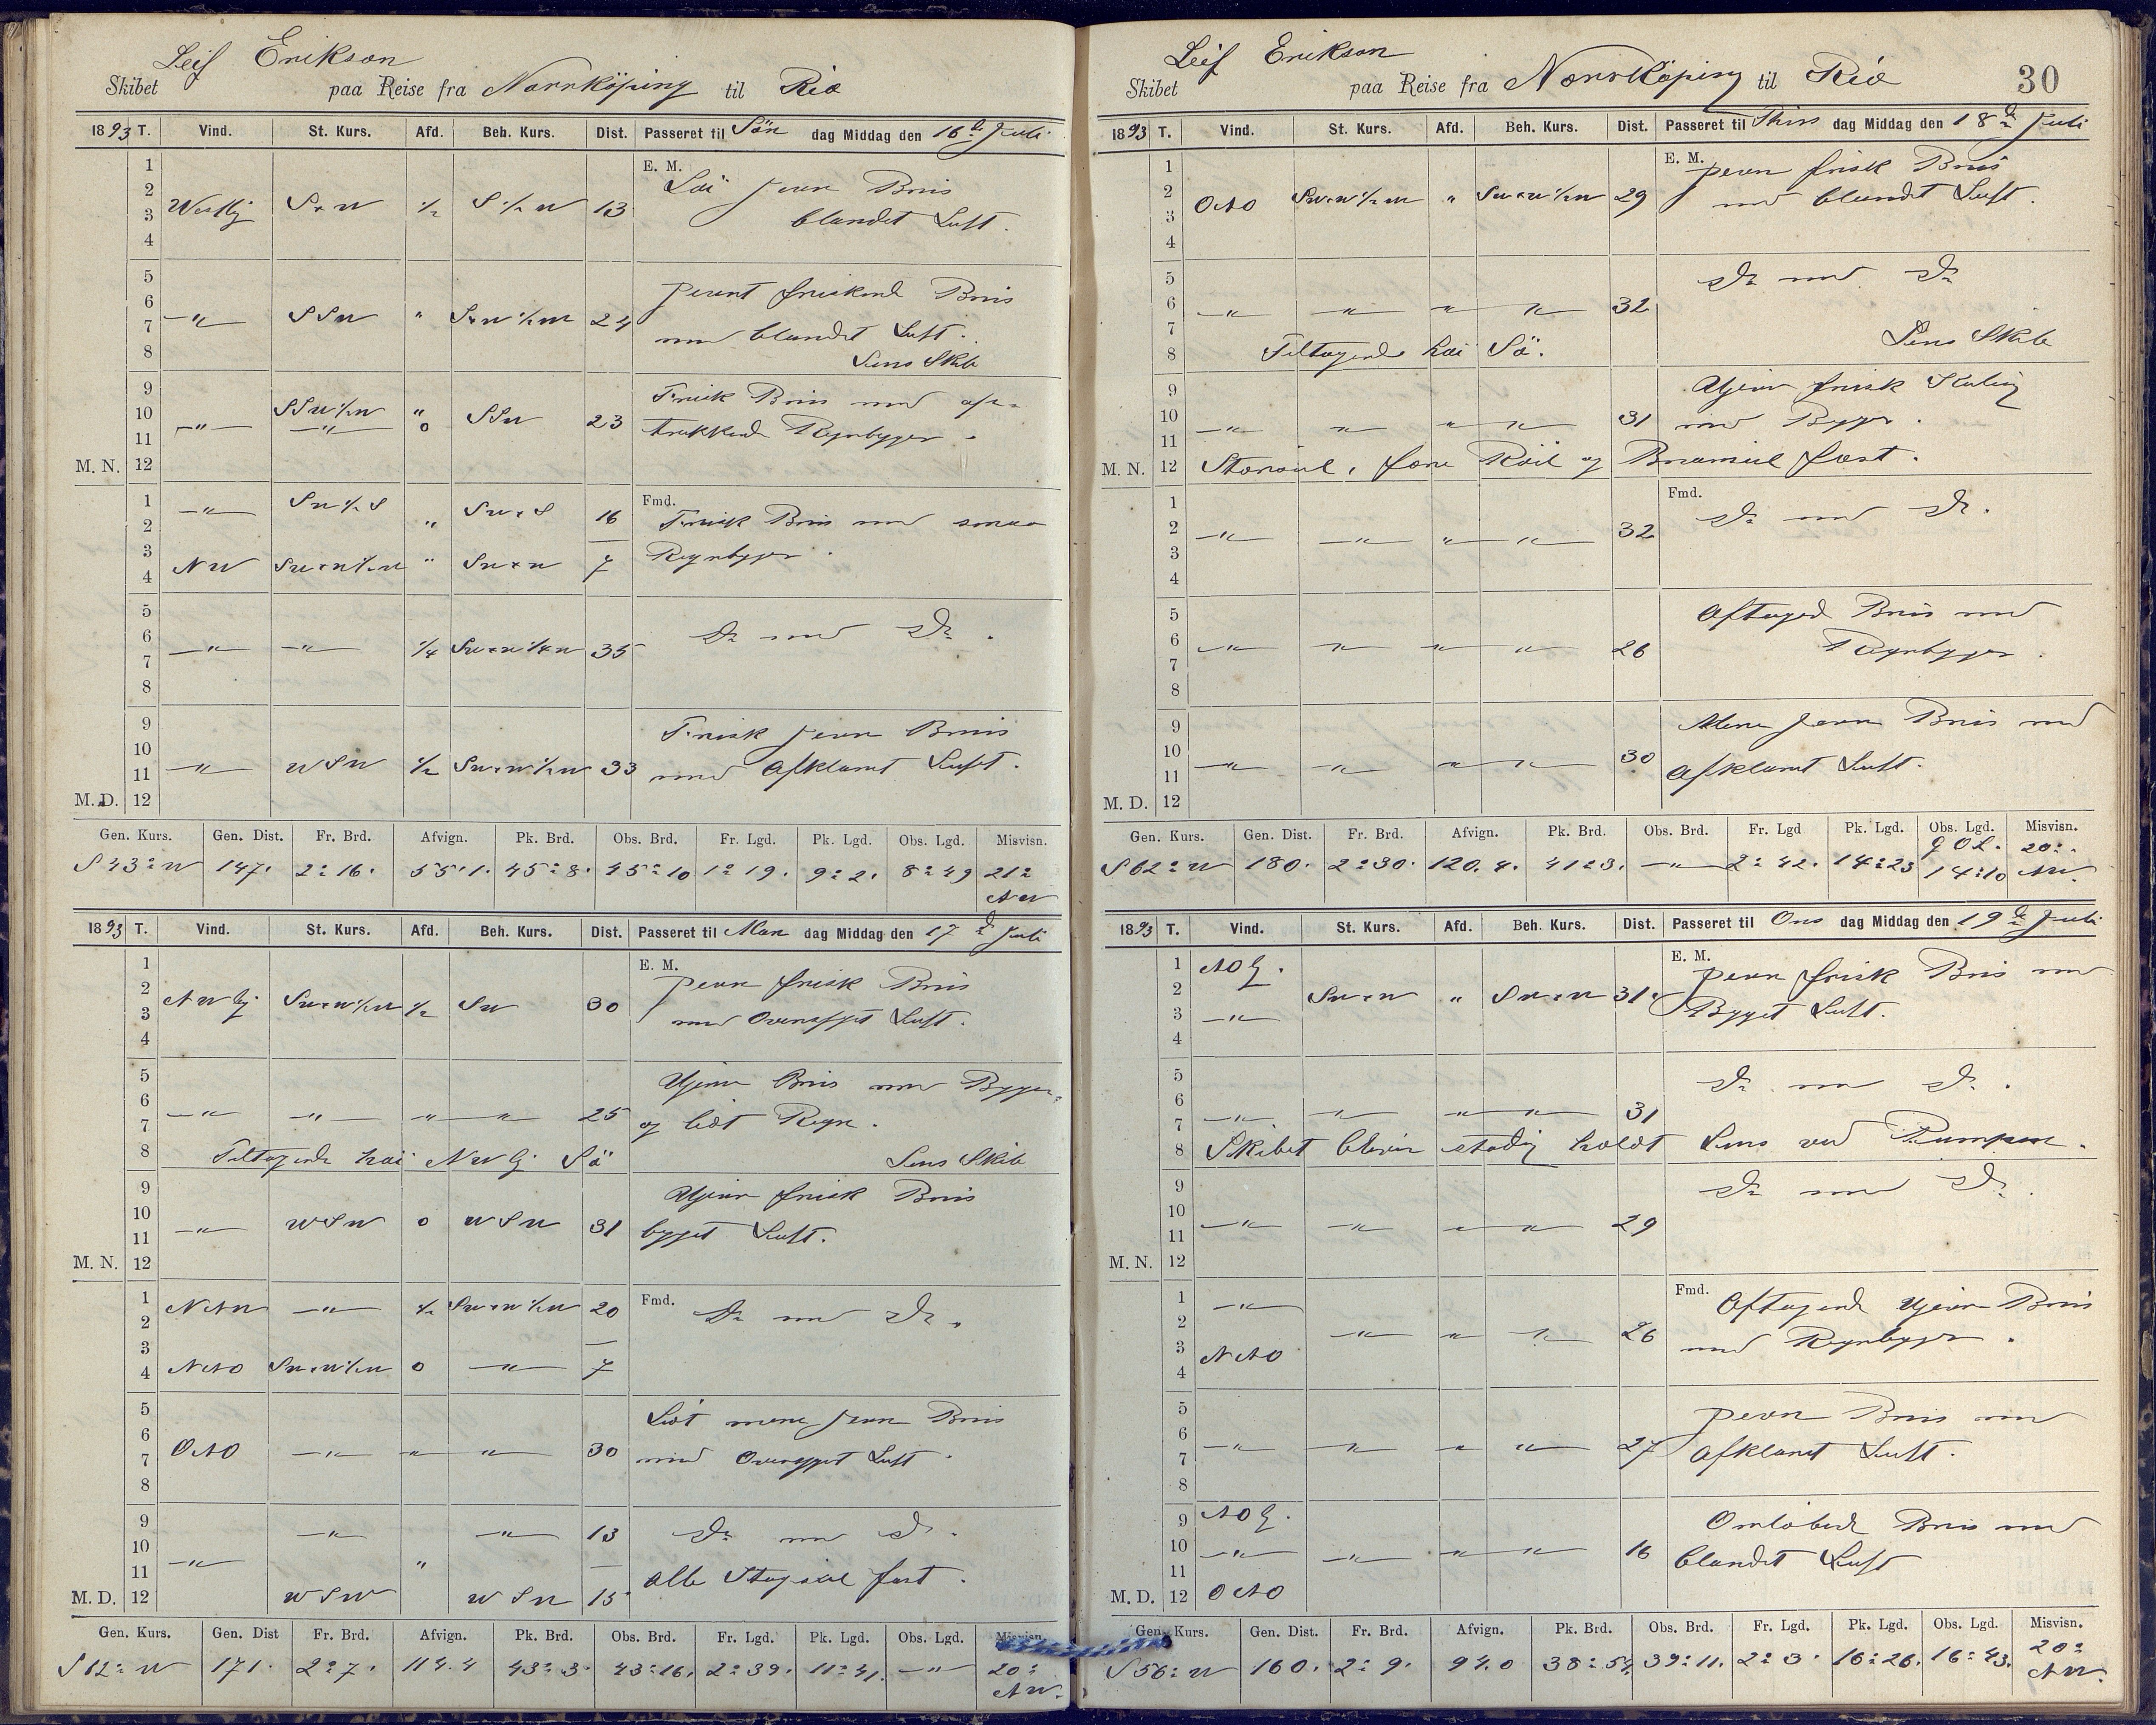 Leif Erikson
Skibet paa Reise fra Norrköping til Rio
1893 T. Vind. St. Kurs. Afd. Beh. Kurs. Dist. Passeret til Sön dag Middag den 16de Juli
E. M.
1
2 Löi jevn Bris
3 Westlig S×W ½ S½W 13 blandet Luft.
4
5
6 jevnt friskend Bris
7 —"— SSW " S×W½W 24 med blandet Luft.
8 Lens Skib
9 Frisk Bris med
10 SSW½W "
11 —"— —"— 0 SSW 23 trekkend Regnbyger.
M. N. 12
1 —"— SW½S " SW×S 16 Fmd. Frisk Bris med smaa
2
3 Regnbyger.
4 NW SW×W½W " SW×W 7
5
6 —"— —"— ¼ SW×W¼W 35 Do med Do.
7
8
9 Frisk jevn Bris
10
11 —"— WSW ½ SW×W½W 33 med afklaret Luft.
M. D. 12
Gen. Kurs. Gen. Dist. Fr. Brd. Afvign. Pk. Brd. Obs. Brd. Fr. Lgd. Pk. Lgd. Obs. Lgd. Misvisn.
S 43° W 147. 2° 16. 55.1. 45° 8. 45° 10 1° 19. 9° 2. 8° 49 21° NW
1893 T. Vind. St. Kurs. Afd. Beh. Kurs. Dist. Passeret til Man dag Middag den 17de Juli
E. M.
1 jevn frisk Bris
2
3 NWlig SW×W½W ½ SW 30 med Overskyet Luft.
4
5 Ujevn Bris med Byger
6
7 —"— —"— " —"— 25 og lidt Regn.
8 Tiltagende höi NWlig Sö Lens Skib
9 Ujevn frisk Bris
10
11 —"— WSW 0 WSW 31 byget Luft.
M. N. 12
1 NNW —"— ½ SW×W½W 20 Fmd. Do med Do.
2
3
4 NNO SW×W½W 0 —"— 7
5 Lidt mere jevn Bris
6
7 ONO —"— " —"— 30 med Overskyet Luft.
8
9 —"— —"— 13 Do med Do.
10
11 —"— " alle Stagseil fast.
M. D. 12 WSW WSW 15
Gen. Kurs. Gen. Dist Fr. Brd. Afvign. Pk. Brd. Obs. Brd. Fr. Lgd. Pk. Lgd. Obs. Lgd. Misvisn.
S 62° W 171. 2° 7. 114.4 43° 3. 43° 16. 2° 39. 11° 41. —"— 20° NW.
Leif Erikson 30
Skibet paa Reise fra Norrköping til Rio
1893 T. Vind. St. Kurs. Afd. Beh. Kurs. Dist. Passeret til Thirs dag Middag den 18de Juli
E. M.
1 jevn frisk Bris
2 ONO SW×W½W " SW×W½W 29 med blandet Luft.
3
4
5 Do med Do
6 —"— —"— " —"— 32
7
8 Tiltagende höi Sö. Lens Skib
9 Ujevn frisk Kuling
10
11 —"— —"— " —"— 31 med Byger.
M. N. 12 Storseil, fore Röil og Bramseil fast.
1 Fmd. Do med Do.
2 —"— —"— " —"— 32
3
4
5 Aftagend Bris med
6 —"— —"— " —"— 26 Regnbyger.
7
8
9 Mere jevn Bris med
10
11 —"— —"— " —"— 30 afklaret Luft.
M. D. 12
Gen. Kurs. Gen. Dist. Fr. Brd. Afvign. Pk. Brd. Obs. Brd. Fr. Lgd Pk. Lgd. Obs. Lgd. Misvisn.
S 62° W 180. 2° 30. 120.4. 41° 3. —"— 2° 42. 14° 23 14° 10 20° NW.
1893 T. Vind. St. Kurs. Afd. Beh. Kurs. Dist. Passeret til Ons dag Middag den 19de Juli
E. M.
1 NOlg. jevn frisk Bris med
2 SW×W " SW×W 31. Byget Luft.
3 —"—
4
5 Do med Do.
6
7 —"— —"— " —"— 31
8 Skibet bliver stadig holdt Lens ved Pumpen.
9 Do med Do.
10
11 —"— —"— " —"— 29
M. N. 12
1 —"— Fmd. Aftagend Ujevn Bris
2 —"— " —"— 26 med Regnbyger.
3 NNO
4
5 jevn Bris med
6
7 —"— —"— " —"— 27 afklaret Luft.
8
9 NOlg. Omlöbende Bris med
10 —"— —"— " —"— 16 blandet Luft
11
M. D. 12 ONO
Gen. Kurs. Gen. Dist. Fr. Brd. Afvign. Pk. Brd. Obs. Brd. Fr. Lgd. Pk. Lgd. Obs. Lgd. Misvisn.
S 56° W 160. 2° 9. 94.0 38° 54 39° 11. 2° 3. 16° 26. 16° 43. 20° NW.